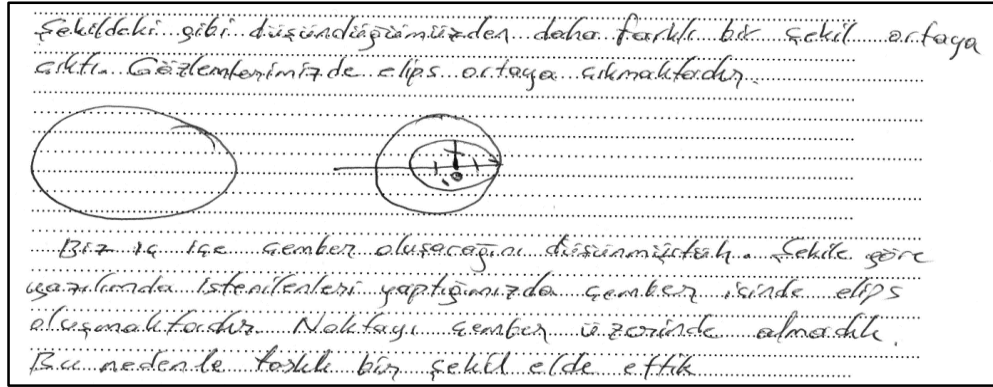 Şekildeki gibi düşündüğümüzden daha farklı bir şekil ortaya
çıktı. Gözlemlerimizde elips ortaya çıkmaktadır.
Biz iç içe çember oluşacağını düşünmüştük. Şekile göre
yazılımda istenilenleri yaptığımızda çember içinde elips
oluşmaktadır. Noktayı çember üzerinde almadık.
Bu nedenle farklı bir şekil elde ettik